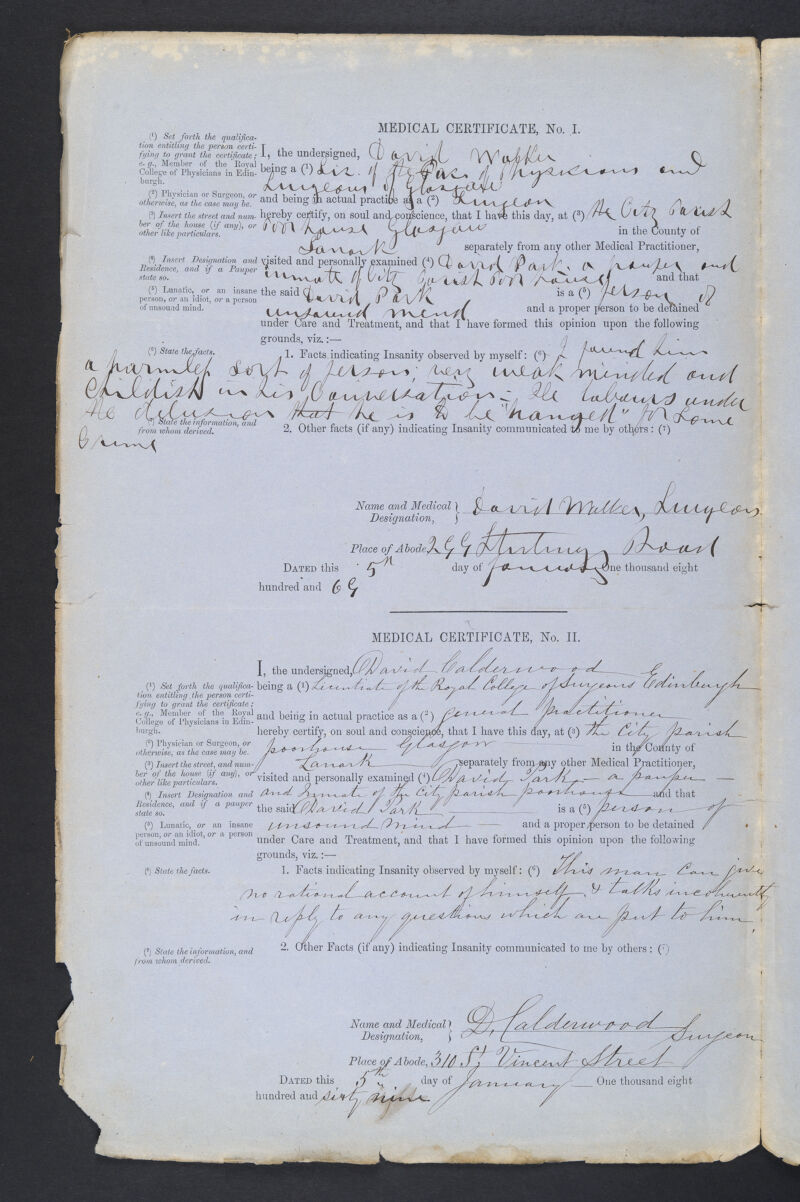 MEDICAL CERTIFICATE, No. I.
(1) Set forth the qualifica-
tion entitling the person certi-
fying to grant the certificate;
e. g., Member of the Royal
College of Physicians in Edin-
burgh.
(2) Physician or Surgeon, or
otherwise, as the case may be.
(3) Insert the street and num-
ber of the house (if any), or
other like particulars.
(4) Insert Designation and
Residence, and if a Pauper
state so.
(5) Lunatic, or an insane
person, or an idiot, or a person
of unsound mind.
(6) State the facts.
(7) State the information, and
from whom derived.
I, the undersigned, David Walker
being a (1) Lic. of the Fac. of Physicians and
Surgeons of Glasgow
and being in actual practice as a (2) Surgeon
hereby certify, on soul and conscience, that I have this day, at (3) the City Parish
Poorhouse Glasgow in the County of
Lanark separately from any other Medical Practitioner,
visited and personally examined (4) David Park a pauper and
inmate of City Parish Poor house and that
the said David Park is a (5) person of
unsound mind and a proper person to be detained
under Care and Treatment, and that I have formed this opinion upon the following
grounds, viz.:—
1. Facts indicating Insanity observed by myself: (6) I found him
a harmless sort of person, very weak minded and
Childish in his Conversation - He labours under
the delusion that he is to be "hanged" for some
Crime
2. Other facts (if any) indicating Insanity communicated to me by others: (7)
Name and Medical Designation, David Walker, Surgeon
Place of Abode 299 Stirling Road
DATED this 5th day of January One thousand eight
hundred and 69
MEDICAL CERTIFICATE, No. II.
(1) Set forth the qualifica-
tion entitling the person certi-
fying to grant the certificate;
e. g., Member of the Royal
College of Physicians in Edin-
burgh.
(2) Physician or Surgeon, or
otherwise, as the case may be.
(3) Insert the street, and num-
ber of the house (if any), or
other like particulars.
(4) Insert Designation and
Residence, and if a pauper
state so.
(5) Lunatic, or an insane
person, or an idiot, or a person
of unsound mind.
(6) State the facts.
(7) State the information, and
from whom derived.
I, the undersigned, David Calderwood
being a (1) Licentiate of the Royal College of Surgeons Edinburgh
and being in actual practice as a (2) general practitioner
hereby certify, on soul and conscience, that I have this day, at (3) the City parish
poorhouse Glasgow in the County of
Lanark separately from any other Medical Practitioner,
visited and personally examined (4) David Park - a pauper -
and Inmate of the City parish poorhouse and that
the said David Park is a (5) person of
unsound mind - and a proper person to be detained
under Care and Treatment, and that I have formed this opinion upon the following
grounds, viz.:—
1. Facts indicating Insanity observed by myself: (6) This man can give
no rational account of himself & talks incoherently
in reply to any questions which are put to him.
2. Other Facts (if any) indicating Insanity communicated to me by others: (7)
Name and Medical Designation, D. Calderwood Surgeon
Place of Abode, 310 St. Vincent Street
DATED this 5th day of January One thousand eight
hundred and sixty nine